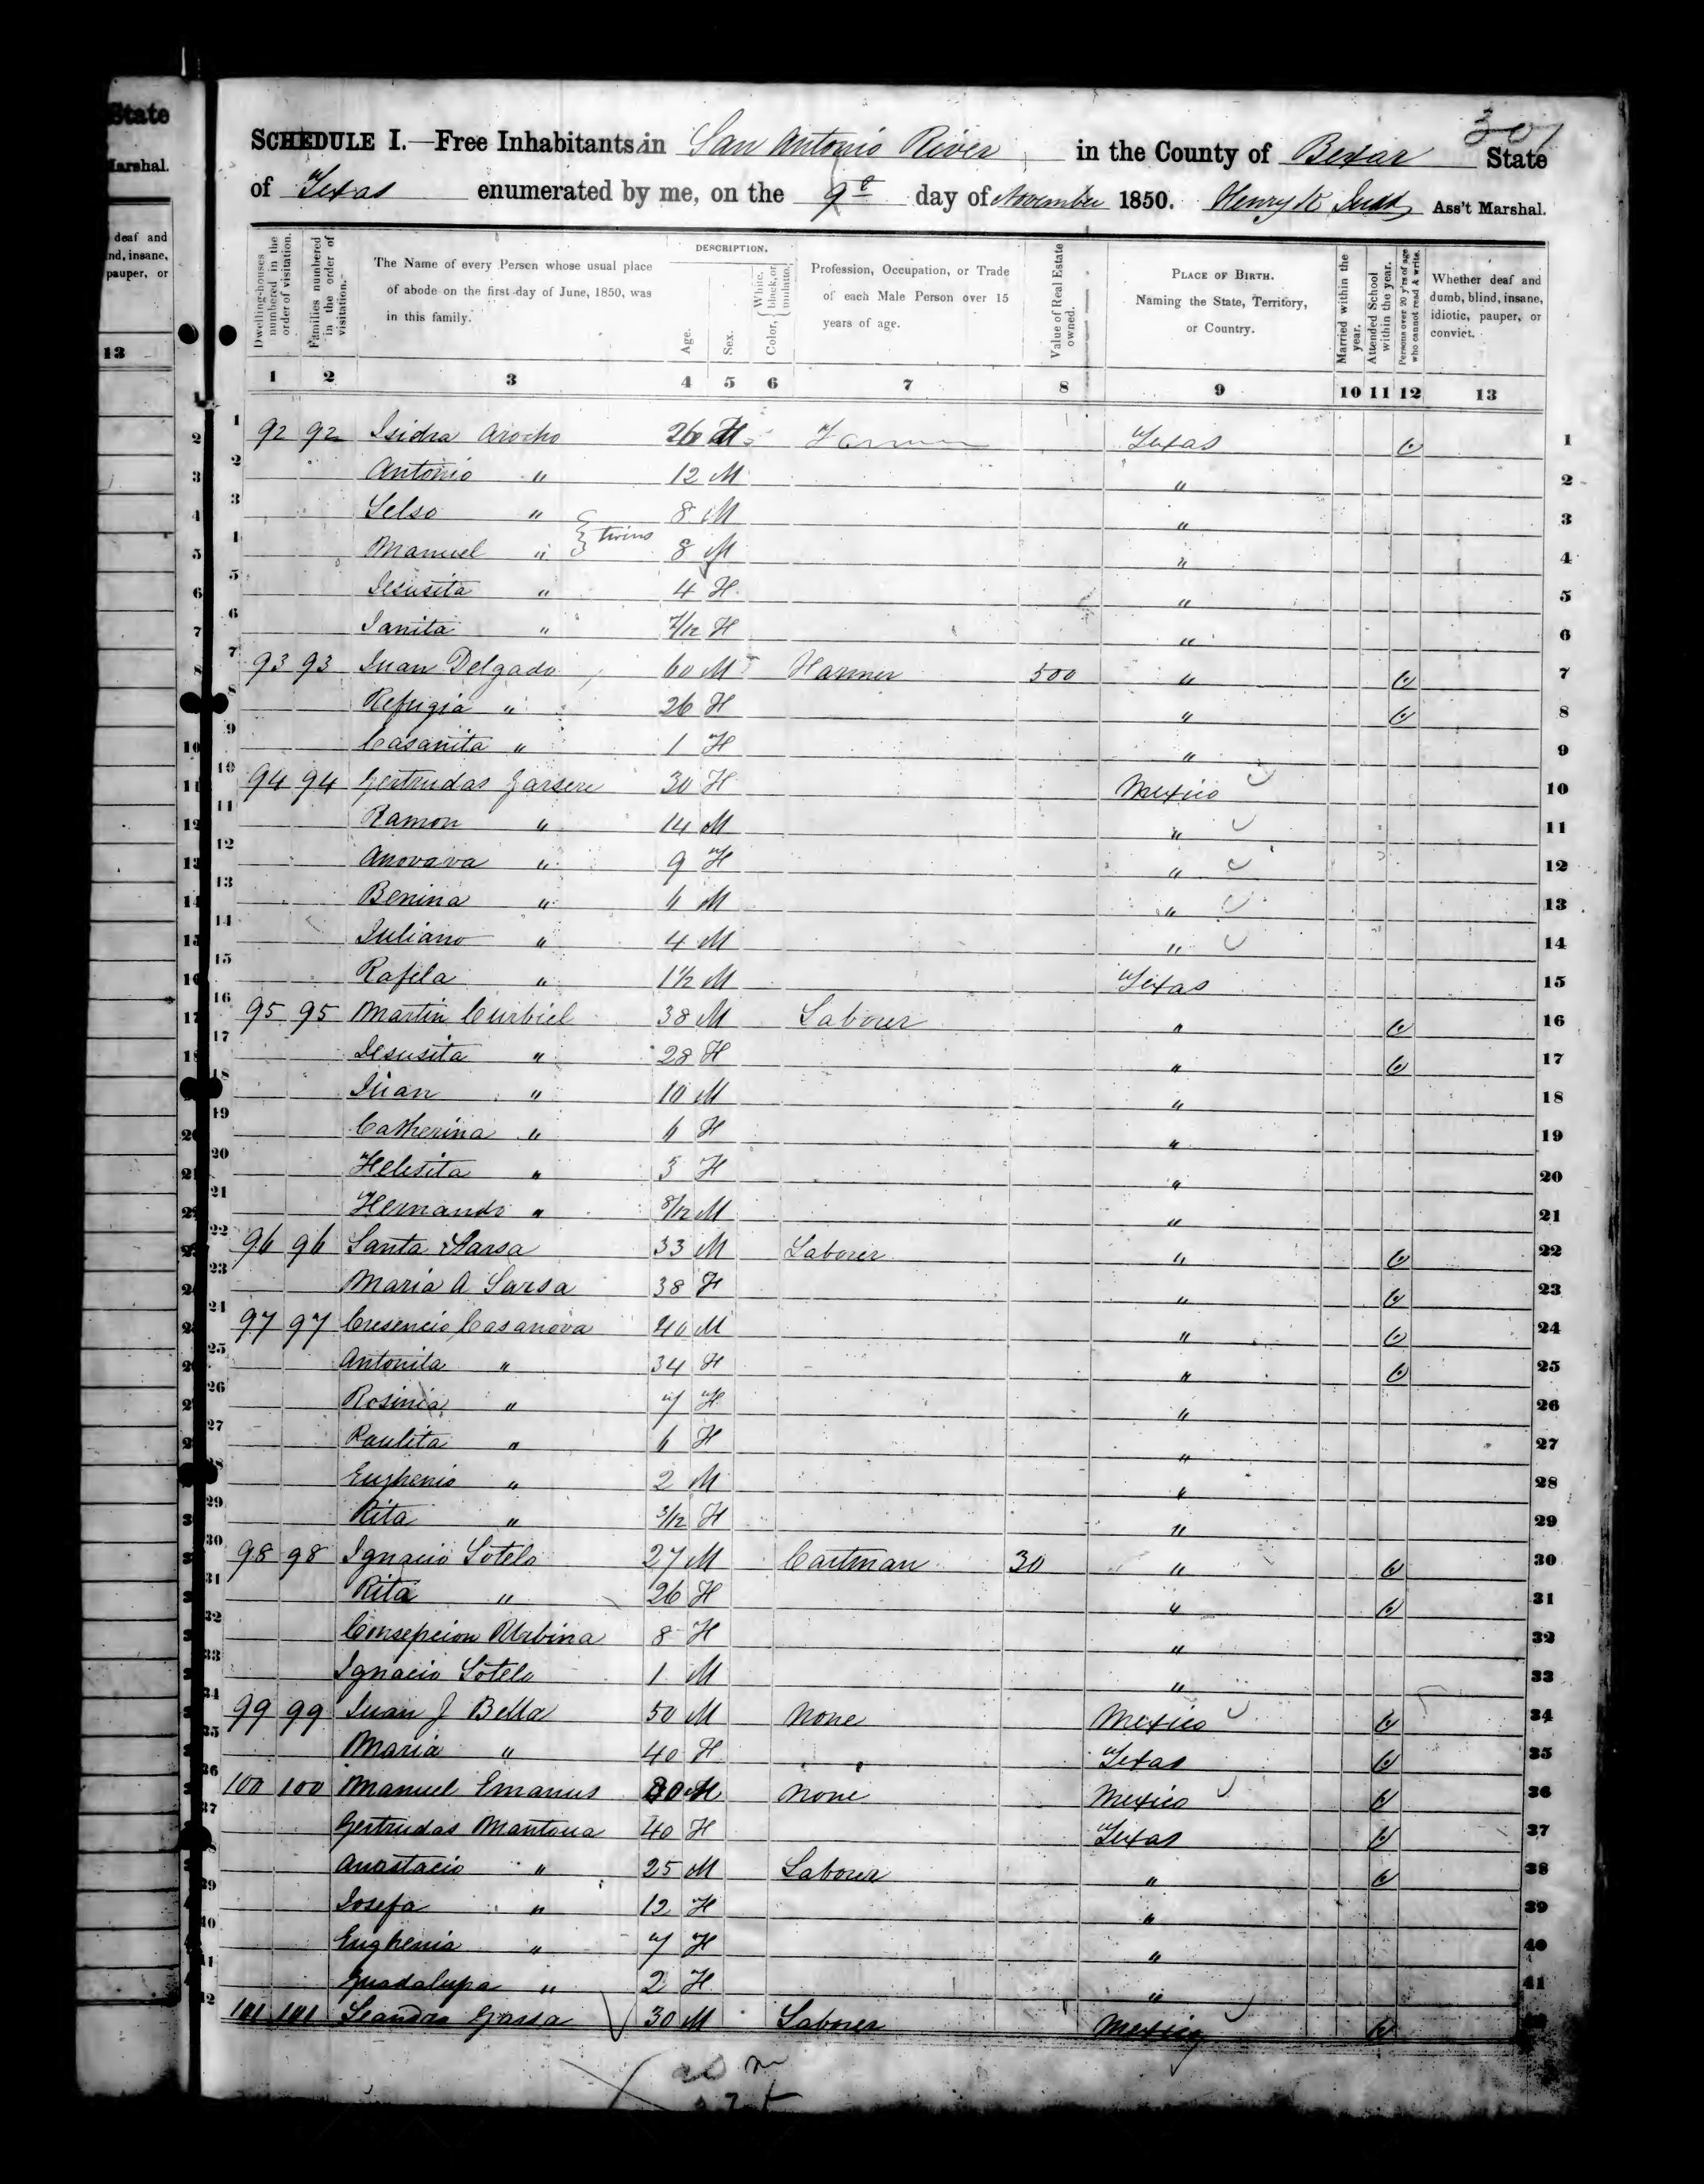 State
Marshal.
deaf and
nd, insane,
pauper, or
13
301
SCHEDULE I.—Free Inhabitants in San Antonio River in the County of Bexar State
of Texas enumerated by me, on the 9th day of November 1850. Henry K Judd Ass't Marshal.
Dwelling-houses numbered in the order of visitation.
Families numbered in the order of visitation.
The Name of every Person whose usual place of abode on the first day of June, 1850, was in this family.
DESCRIPTION.
Age.
Sex.
Color, { White, black, or mulatto.
Profession, Occupation, or Trade of each Male Person over 15 years of age.
Value of Real Estate owned.
PLACE OF BIRTH. Naming the State, Territory, or Country.
Married within the year.
Attended School within the year.
Persons over 20 y'rs of age who cannot read & write.
Whether deaf and dumb, blind, insane, idiotic, pauper, or convict.
1 2 3 4 5 6 7 8 9 10 11 12 13
1 92 92 Isidra Arocho 26 Farmer Texas 1
2 Antonio " 12 M " 2
3 Selso " 8 M " 3
{ twins
Manuel " 8 M " 4
5 Jesusita " 4 F " 5
6 Janita " 7/12 F " 6
7 93 93 Juan Delgado 60 M Farmer 500 " 7
8 Refugia " 26 F " 8
9 Casanita " 1 F " 9
10 94 94 Gertrudas Garsere 30 F Mexico 10
11 Ramon " 14 M " 11
12 Anovava " 9 F " 12
13 Benina " 6 M " 13
14 Juliano " 4 M " 14
15 Rafela " 1½ M Texas 15
16 95 95 Martin Curbiel 38 M Laborer " 16
17 Jesusita " 28 F " 17
18 Juan " 10 M " 18
19 Catherina " 6 F " 19
20 Felesita " 3 F " 20
21 Fernando " 8/12 M " 21
22 96 96 Santa Sarsa 33 M Laborer " 22
23 Maria A Sarsa 38 F " 23
97 97 Cresencio Casanova 40 M " 24
25 Antonita " 34 F " 25
26 Rosinia " 7 F " 26
27 Paulita " 6 F " 27
28 Eughenio " 2 M " 28
29 Rita " 3/12 F " 29
30 98 98 Ignacio Sotelo 27 M Cartman 30 " 30
31 Rita " 26 F " 31
32 Consepcion Urbina 8 F " 32
33 Ignacio Sotelo 1 M " 33
34 99 99 Juan J Bella 50 M None Mexico 34
35 Maria " 40 F Texas 35
36 100 100 Manuel Emanus 80 M None Mexico 36
37 Gertrudas Mantoua 40 F Texas 37
Anastacio " 25 M Laborer " 38
39 Josefa " 12 F " 39
40 Eughenia " 7 F " 40
Guadalupa " 2 F " 41
101 101 Leandro Garsa 30 M Laborer Mexico